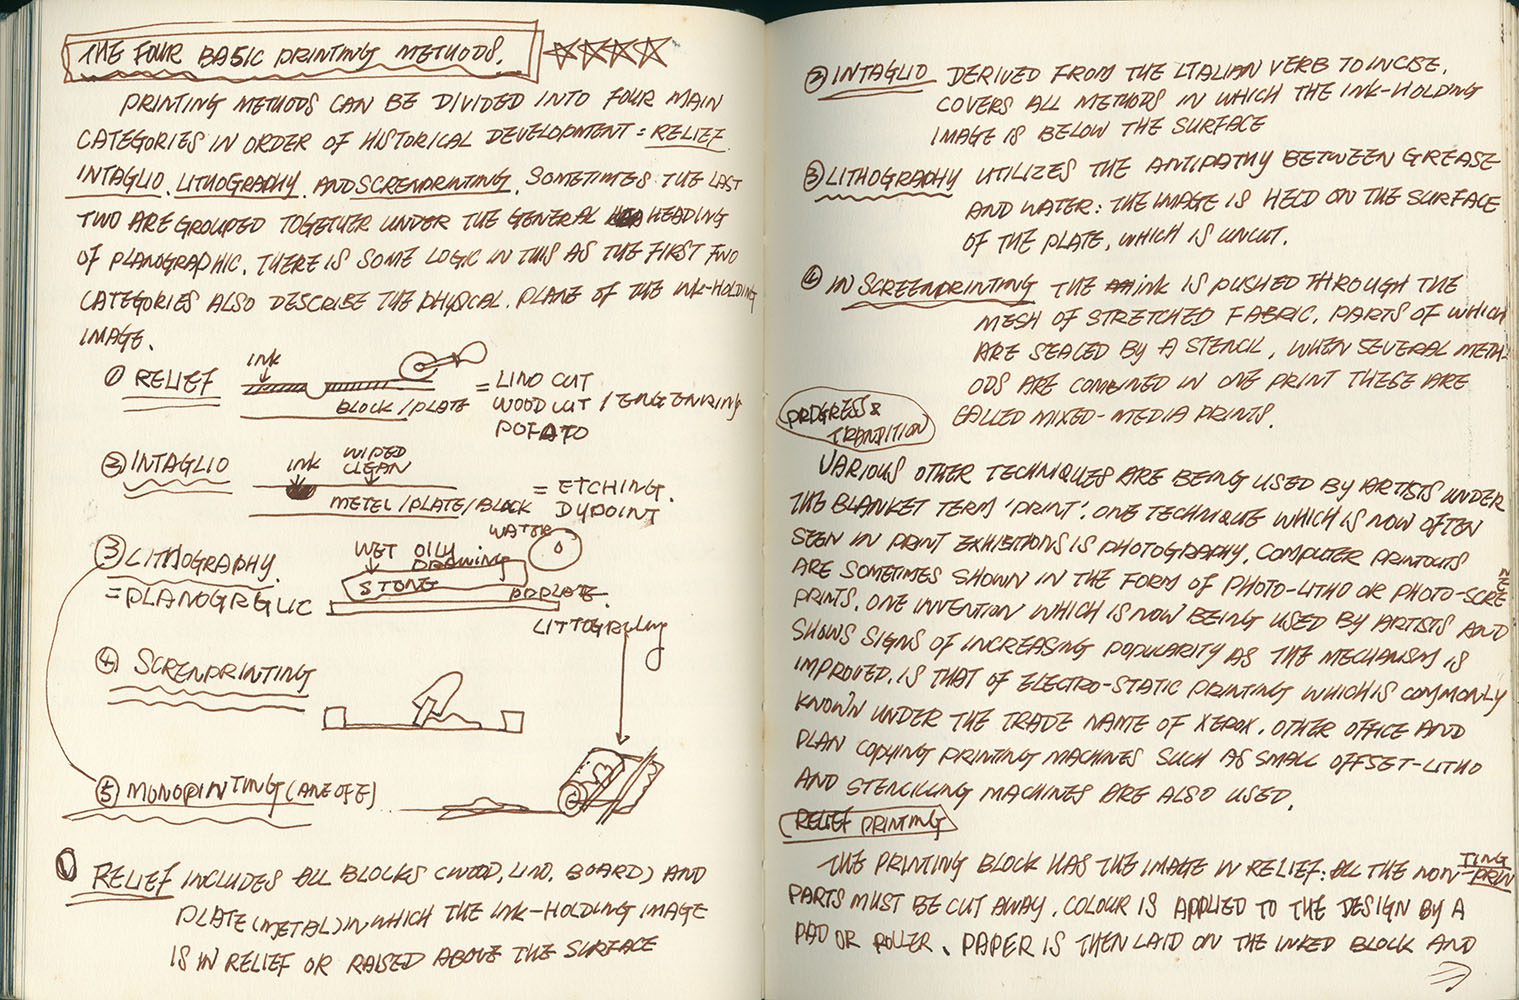 THE FOUR BASIC PRINTING METHODS.
PRINTING METHODS CAN BE DIVIDED INTO FOUR MAIN
CATEGORIES IN ORDER OF HISTORICAL DEVELOPMENT = RELIEF.
INTAGLIO. LITHOGRAPHY. AND SCRENPRINTING. SOMETIMES THE LAST
TWO ARE GROUPED TOGETHER UNDER THE GENERAL HEADING
OF PLANOGRAPHIC. THERE IS SOME LOGIC IN THIS AS THE FIRST TWO
CATEGORIES ALSO DESCRIBE THE PHYSICAL. PLANE OF THE INK-HOLDING
IMAGE.
① RELIEF
INK
BLOCK/PLATE
= LINO CUT
WOOD CUT /
POTATO
② INTAGLIO
INK
WIPED
CLEAN
METEL/PLATE/BLOCK
= ETCHING.
DYPOINT
③ LITHOGRAPHY.
WET OILY
DRAWING
WATER
STONE
LITTOGRAPHY
④ SCRENPRINTING
⑤ MONOPINTING
① RELIEF INCLUDES ALL BLOCKS (WOOD, LINO, BOARD) AND
PLATE (METAL) IN WHICH THE INK-HOLDING IMAGE
IS IN RELIEF OR RAISED ABOVE THE SURFACE
② INTAGLIO DERIVED FROM THE ITALIAN VERB TO INCISE.
COVERS ALL METHODS IN WHICH THE INK-HOLDING
IMAGE IS BELOW THE SURFACE
③ LITHOGRAPHY UTILIZES THE ANTIPATHY BETWEEN GREASE
AND WATER: THE IMAGE IS HELD ON THE SURFACE
OF THE PLATE, WHICH IS UNCUT.
④ IN SCREENPRINTING THE INK IS PUSHED THROUGH THE
MESH OF STRETCHED FABRIC, PARTS OF WHICH
ARE SEALED BY A STENCIL, WHEN SEVERAL METH-
ODS ARE COMBINED IN ONE PRINT THESE ARE
CALLED MIXED-MEDIA PRINTS.
PROGRESS &
TRANDITION
VARIOUS OTHER TECHNIQUES ARE BEING USED BY ARTISTS UNDER
THE BLANKET TERM 'PRINT'. ONE TECHNIQUE WHICH IS NOW OFTEN
SEEN IN PRINT EXHIBITIONS IS PHOTOGRAPHY, COMPUTER PRINTOUTS
ARE SOMETIMES SHOWN IN THE FORM OF PHOTO-LITHO OR PHOTO-SCREEN
PRINTS. ONE INVENTION WHICH IS NOW BEING USED BY ARTISTS AND
SHOWS SIGNS OF INCREASING POPULARITY AS THE MECHANISM IS
IMPROVED, IS THAT OF ELECTRO-STATIC PRINTING WHICH IS COMMONLY
KNOWN UNDER THE TRADE NAME OF XEROX. OTHER OFFICE AND
PLAN COPYING PRINTING MACHINES SUCH AS SMALL OFFSET-LITHO
AND STENCILLING MACHINES ARE ALSO USED.
RELIEF PRINTING
THE PRINTING BLOCK HAS THE IMAGE IN RELIEF: ALL THE NON-PRINTING
PARTS MUST BE CUT AWAY. COLOUR IS APPLIED TO THE DESIGN BY A
PAD OR ROLLER. PAPER IS THEN LAID ON THE INKED BLOCK AND